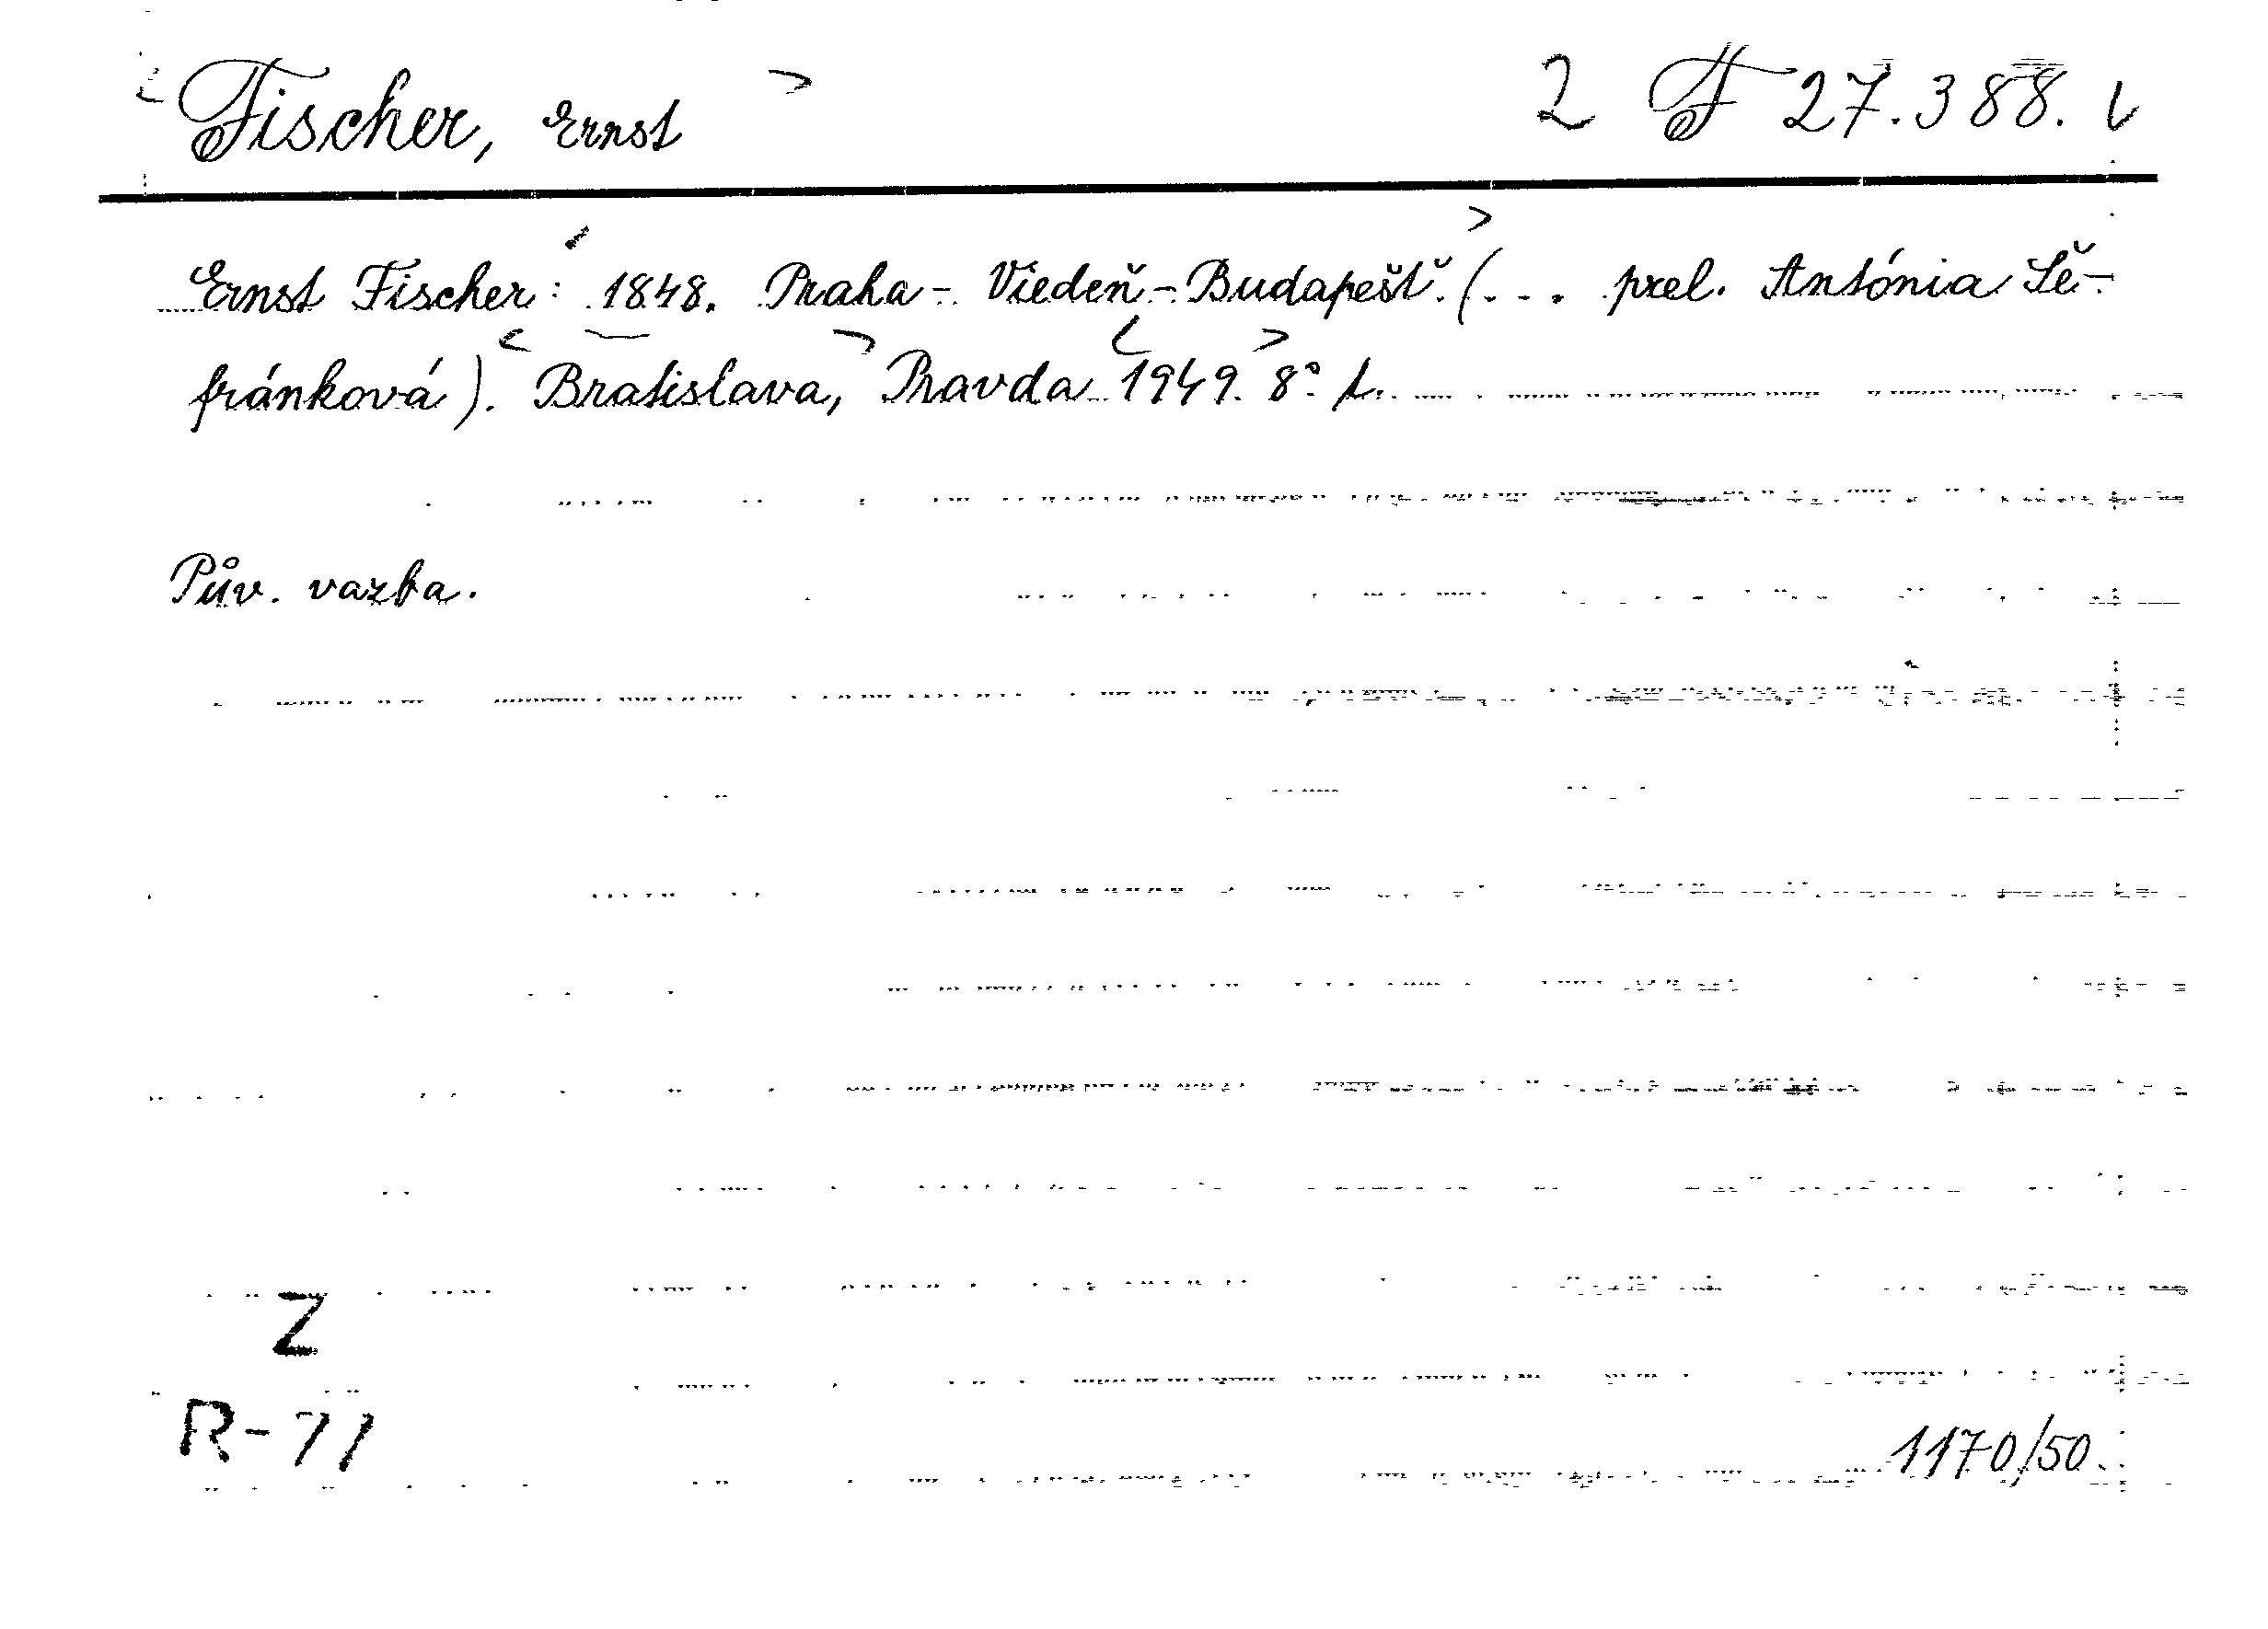 Fischer, Ernst 2 F 27.388.
Ernst Fischer: 1848. Praha - Viedeň - Budapešť. (... prel. Antónia Šě-
fránková). Bratislava, Pravda 1949. 8°.
Pův. vazba.
Z
R-71
1170/50